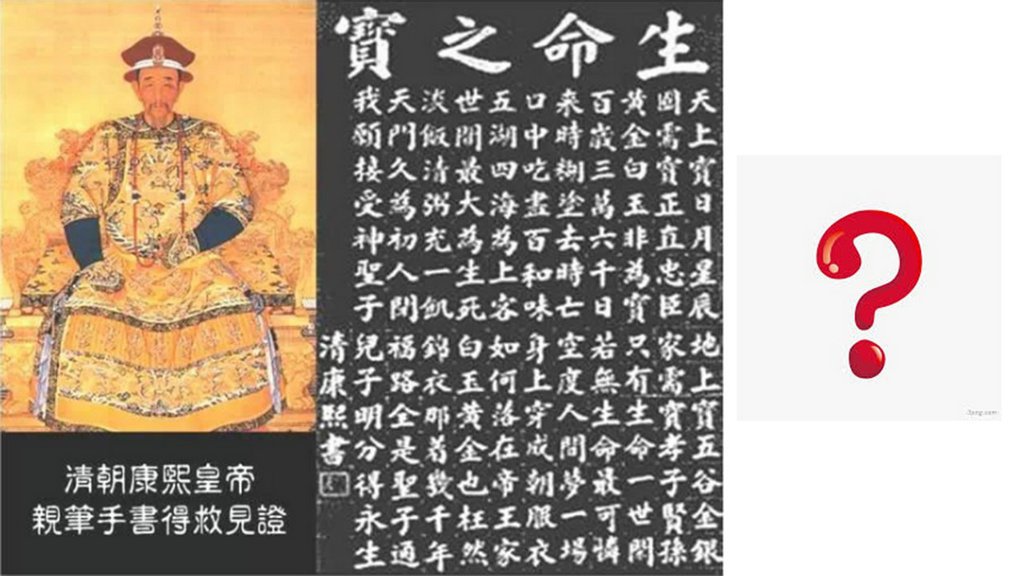 生命之寶
天上寶日月星辰 地上寶五谷金銀
國需寶正直忠臣 家需寶孝子賢孫
黃金白玉非為寶 只有生命一世閒
百歲三萬六千日 若無生命最可憐
來時糊塗去時亡 空度人間夢一場
口中吃盡百和味 身上穿成朝服衣
五湖四海為上客 如何落在帝王家
世間最大為生死 白玉黃金也枉然
淡飯清粥充一飢 錦衣那着幾千年
天門久為初人閉 福路全是聖子通
我願接受神聖子 兒子明分得永生
清康熙書
清朝康熙皇帝
親筆手書得救見證